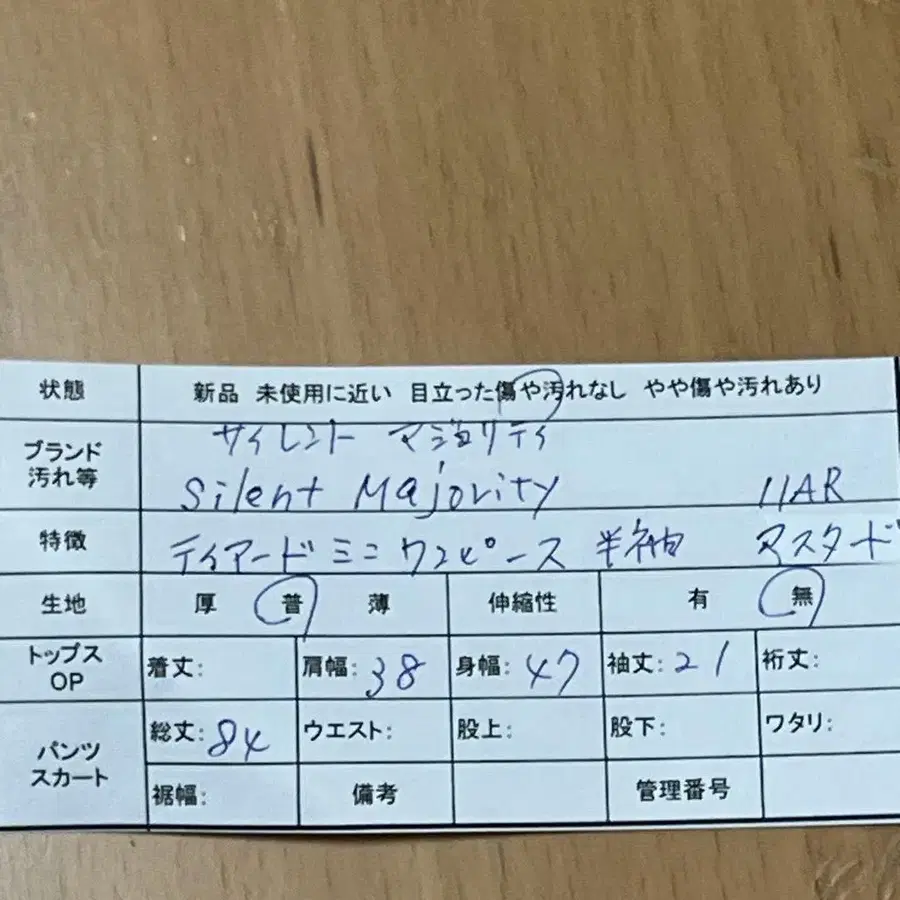 状態 新品 未使用に近い 目立った傷や汚れなし やや傷や汚れあり
ブランド 汚れ等 サイレント マジョリティ
Silent Majority 11AR
特徴 ティアード ミニ ワンピース 半袖 マスタード
生地 厚 普 薄 伸縮性 有 無
トップス OP 着丈: 肩幅: 38 身幅: 47 袖丈: 21 裄丈:
パンツ スカート 総丈: 84 ウエスト: 股上: 股下: ワタリ:
裾幅: 備考 管理番号